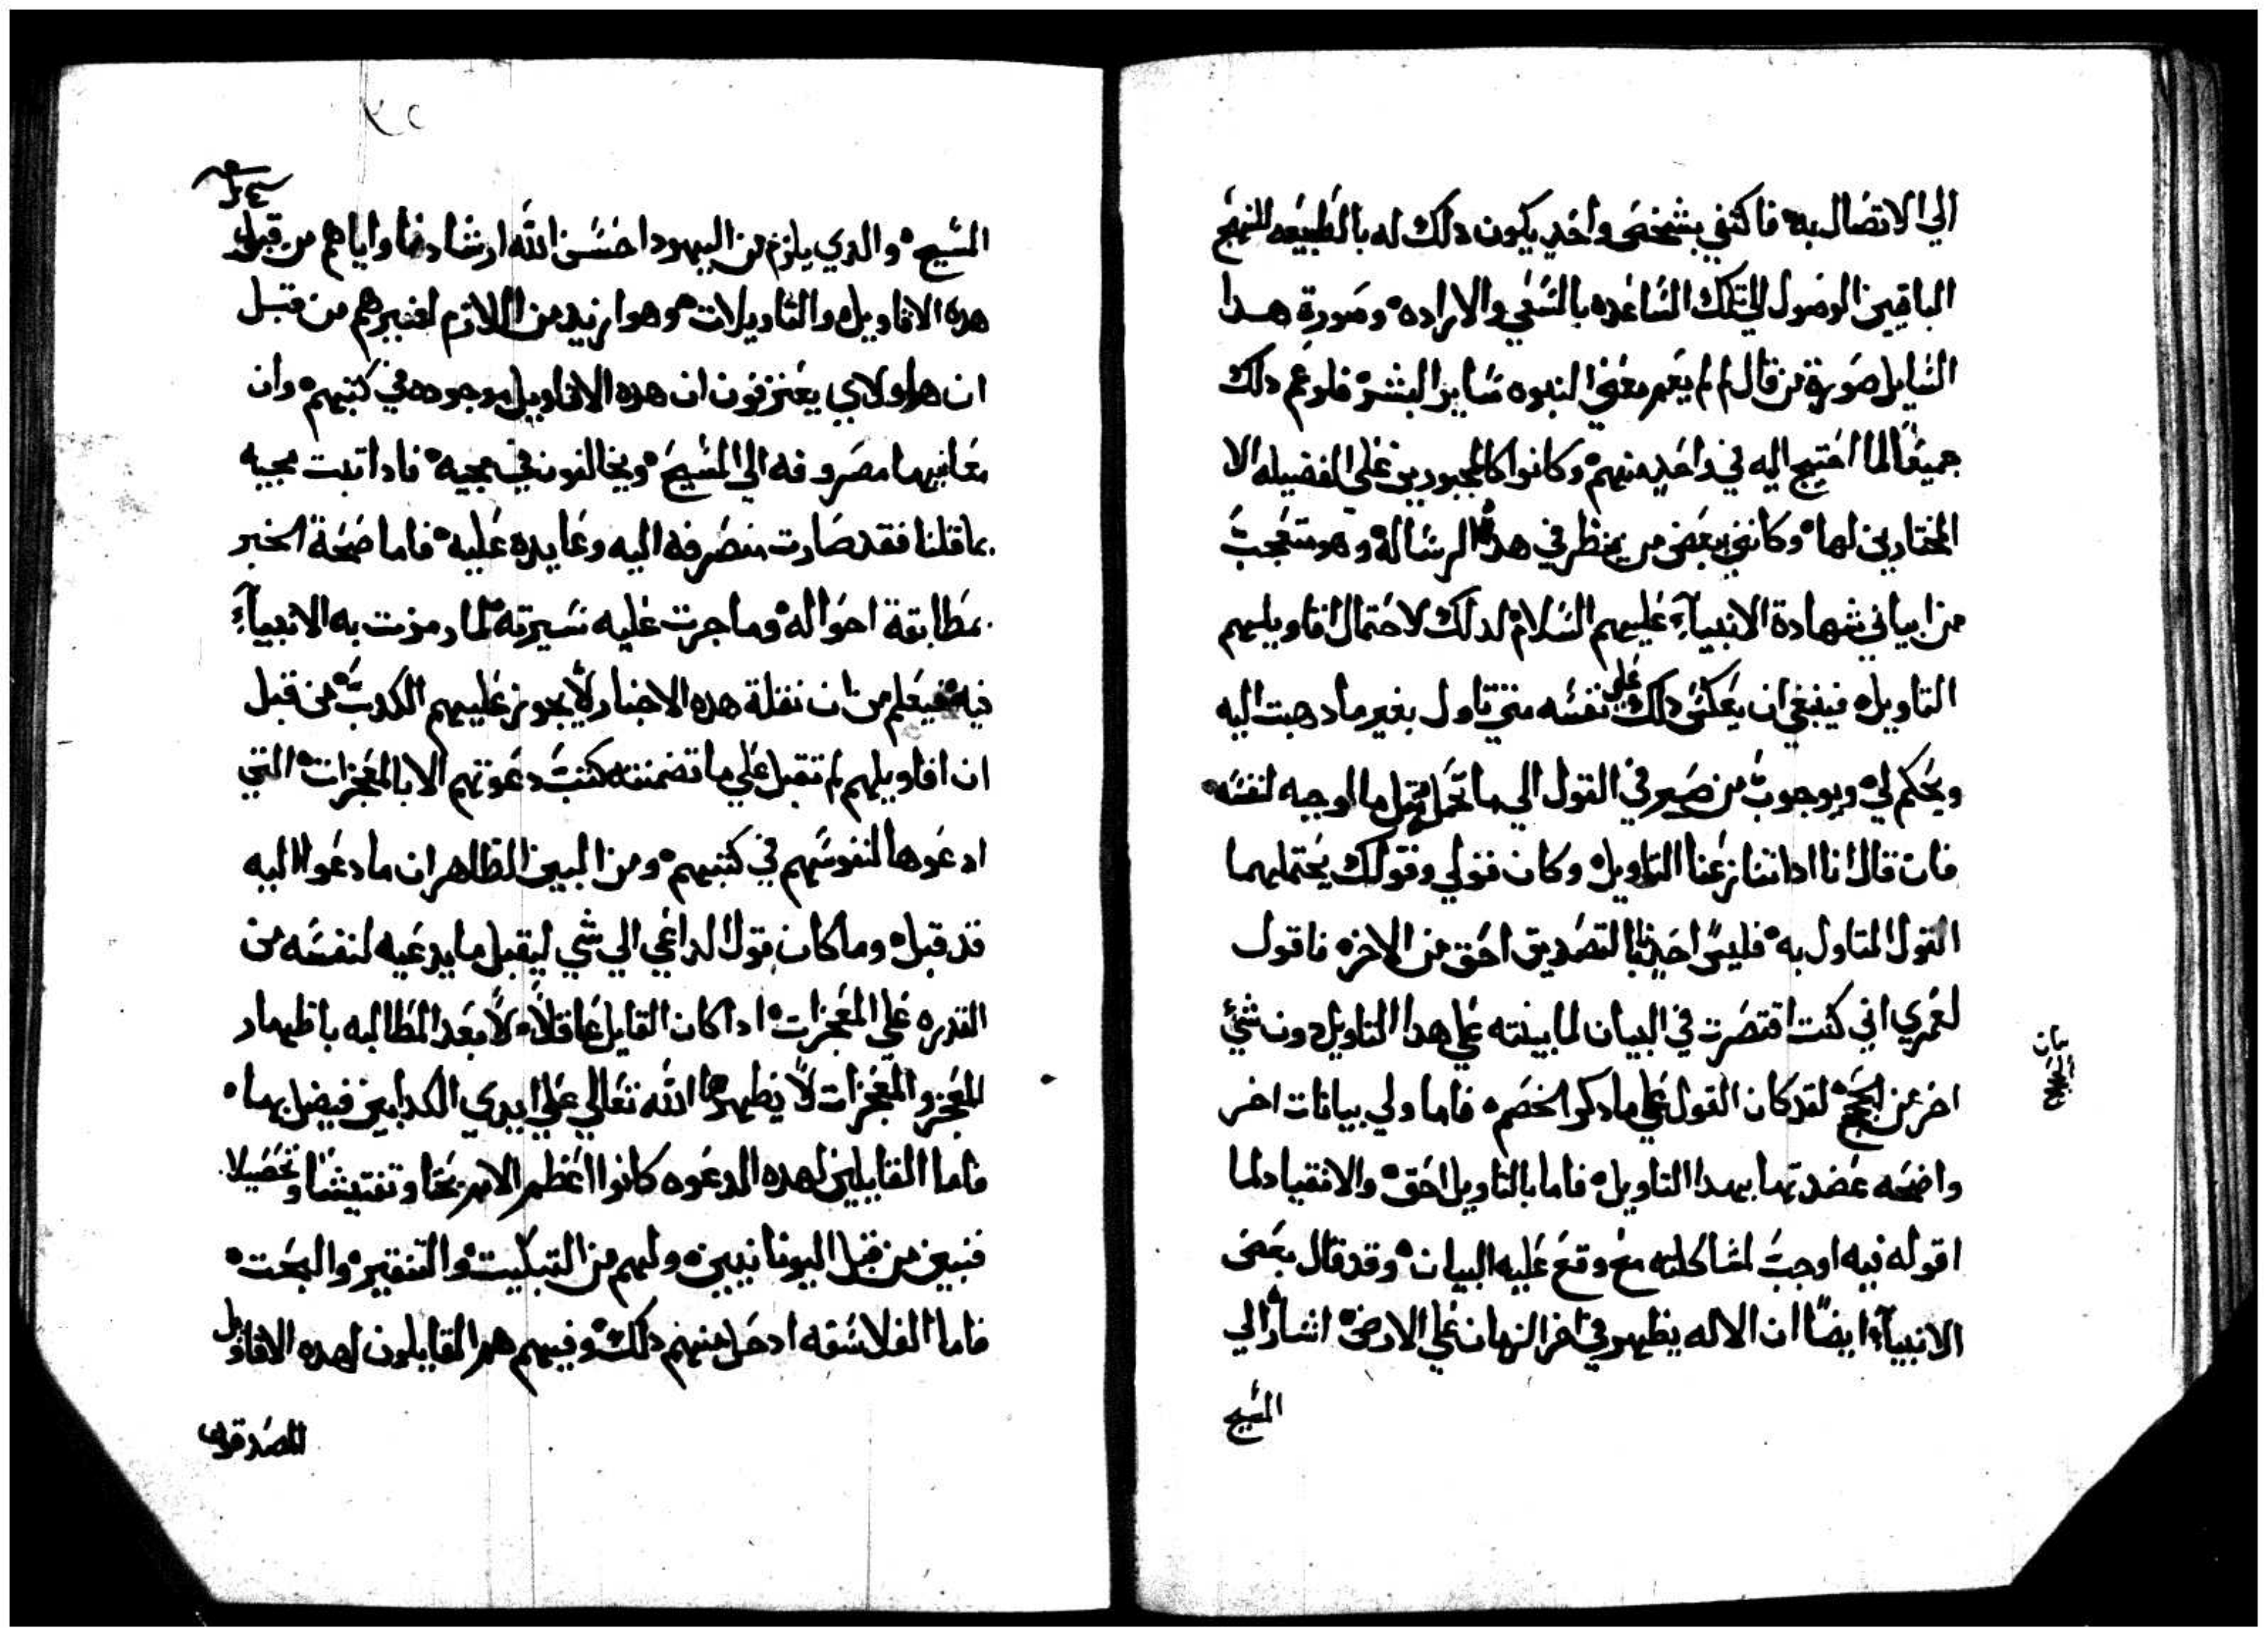 الي الاتصال به فاكتفي بشخص واحد يكون دلك له بالطبيعه لينهج
الباقيين الوصول الي تلك الشاعده بالسعي والاراده وصورة هدا
السايل صورة من قال لم لم يعم معني النبوه ساير البشر فلو عم دلك
جميعًا لما احتيج اليه في واحد منهم وكانوا كالمجبورين علي الفضيله لا
المختارين لها وكانني ببعض من ينظر في هده الرساله وهو متعجب
من ابياني شهادة الانبياء عليهم السلام لدلك لاحتمال اقاويلهم
التاويل فينبغي ان يعكس دلك علي نفسه متي تاول بغير ما دهبت اليه
ويحكم لي وبوجوب من صير في القول الي ما تحمل مثل ما اوجبه لنفسه
فان قال انا ادا تنازعنا التاويل وكان قولي وقولك يحتملهما
القول المتاول به فليس احدنا بالتصديق احق من الاخر فاقول
لعمري اني كنت اقتصرت في البيان لما بينته علي هدا التاويل دون شيء
اخر من الحجج لقد كان القول علي ما دكر الخصم فاما ولي بيانات اخر
واضحه عضدتها بهدا التاويل فاما بالتاويل احق والانقياد لما
اقوله فيه اوجب لمشاكلته مع وقع عليه البيان وقد قال بعض
الانبياء ايضًا ان الاله يظهر في اخر الزمان علي الارض اشار الي
المسيح
بيان
المسيح والدي يلزم من اليهود احسن الله ارشادنا واياهم من قبل
هده الاقاويل والتاويلات هو ازيد من اللازم لغيرهم من قبل
ان هاولاي يعترفون ان هده الاقاويل موجوده في كتبهم وان
معانيها مصروفه الي المسيح ويخالفون في مجيه فادا تبت مجيه
بما قلنا فقد صارت منصرفه اليه وعايده عليه فاما صحة الخبر
بمطابقة احواله وما جرت عليه سيرته لما رمزت به الانبياء
فيه فيعلم من ان نقلة هده الاخبار لا يجوز عليهم الكدب من قبل
ان اقاويلهم لم تقبل علي ما تضمنته كتب دعوتهم الا بالمعجزات التي
ادعوها لنفوسهم في كتبهم ومن البين الظاهر ان ما دعوا اليه
قد قبل وما كان قول الداعي الي شي ليقبل ما يدعيه لنفسه من
القدره علي المعجزات ادا كان القايل عاقلاً الا بعد المطالبه باظهار
المعجز والمعجزات لا يظهرها الله تعالي علي ايدي الكدابين فيضل بها
فاما القابلين لهده الدعوه كانوا اعظم الامم بحتا وتفتيشًا وتحصيلا
فنبين من قبل اليونانيين ولهم من التبكيت والتنقير والبحت
فاما الفلاسفه ادخل منهم دلك وفيهم هم القابلون لهده الاقاويل
المصدقون